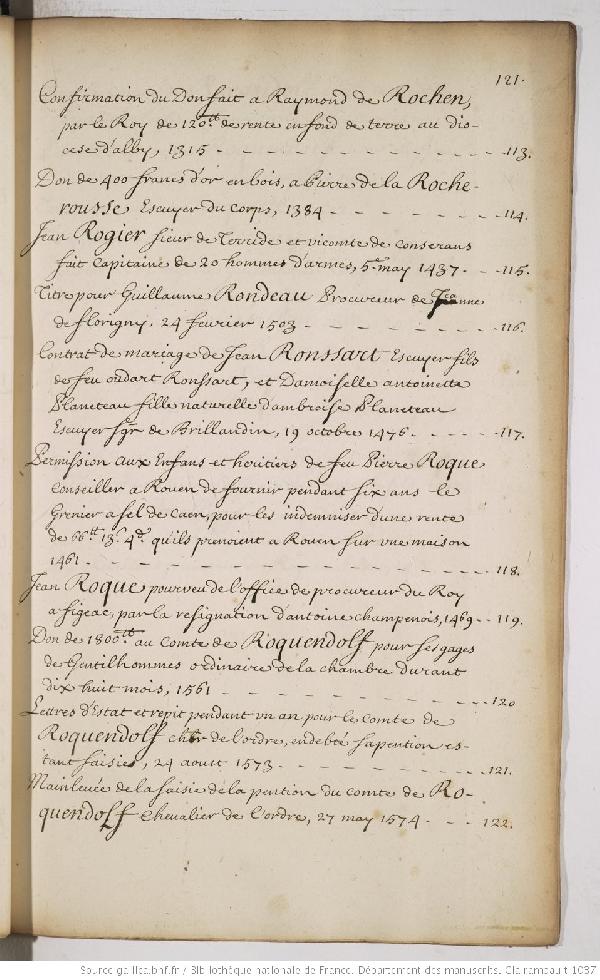 121.
Confirmation du Don fait a Raymond de Rochen,
par le Roy de 120ᵗᵗ de rente en fond de terre au dio-
cese d'alby, 1315 - - - - - - - - - - 113.
Don de 400 francs d'or en bois, a Pierre de la Roche-
rousse Escuyer du corps, 1384 - - - - - - 114.
Jean Rogier sieur de Terride et vicomte de conserans
fait Capitaine de 20 hommes d'armes, 5e may 1437 - - 115.
Titre pour Guillaume Rondeau Procureur de Jeanne
de florigny. 24 fevrier 1503 - - - - - - - 116.
Contrat de mariage de Jean Ronssart Escuyer fils
de feu oudart Ronssart, et Damoiselle antoinette
Planeteau fille naturelle d'ambroise Planeteau
Escuyer sgr de Brillandin, 19 octobre 1476 - - - - - 117.
Permission aux Enfans et heritiers de feu Pierre Roque
conseiller a Rouen de fournir pendant six ans le
Grenier a sel de Caen, pour les indemniser d'une rente
de 66ᵗᵗ 13s 4d. qu'ils prenoient a Rouen sur une maison
1461 - - - - - - - - - - - - - 118.
Jean Roque pourveu de l'office de procureur du Roy
a figeac, par la resignation d'antoine champenois, 1469 - - 119.
Don de 1800ᵗᵗ au Comte de Roquendolf pour ses gages
de Gentilhommes ordinaire de la chambre durant
dix huit mois, 1561 - - - - - - - - - 120
Lettres d'Estat et repit pendant un an pour le comte de
Roquendolf chlr de l'ordre, endebté sa pention es-
tant saisie, 24 aout 1573 - - - - - - - - 121.
Mainlevée de la saisie de la pention du comte de Ro-
quendolf chevalier de l'ordre, 27 may 1574 - - - - 122.
Source gallica.bnf.fr / Bibliothèque nationale de France. Département des manuscrits. Clairambault 1037